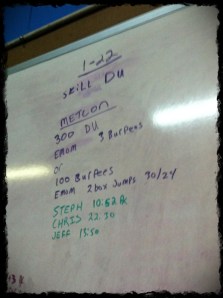 1-22
SKILL DU
METCON
300 DU
EMOM 3 Burpees
or
100 Burpees
EMOM 2 box Jumps 30/24
STEPH 10:52
CHRIS 22:30
JEFF 15:50